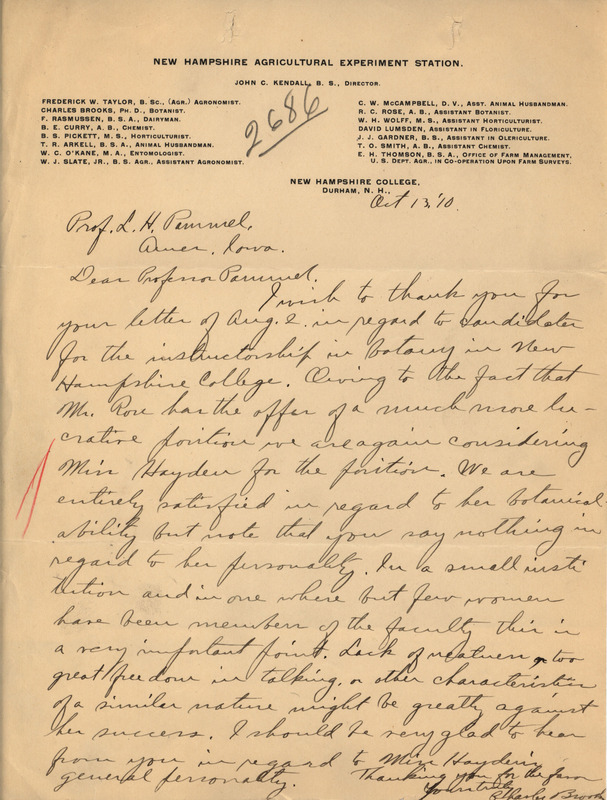 NEW HAMPSHIRE AGRICULTURAL EXPERIMENT STATION.
JOHN C. KENDALL, B. S., DIRECTOR.
FREDERICK W. TAYLOR, B. SC., (AGR.) AGRONOMIST.
CHARLES BROOKS, PH. D., BOTANIST.
F. RASMUSSEN, B. S. A., DAIRYMAN.
B. E. CURRY, A. B., CHEMIST.
B. S. PICKETT, M. S., HORTICULTURIST.
T. R. ARKELL, B. S. A., ANIMAL HUSBANDMAN.
W. C. O'KANE, M. A., ENTOMOLOGIST.
W. J. SLATE, JR., B. S. AGR., ASSISTANT AGRONOMIST.
2686
C. W. McCAMPBELL, D. V., ASST. ANIMAL HUSBANDMAN.
R. C. ROSE, A. B., ASSISTANT BOTANIST.
W. H. WOLFF, M. S., ASSISTANT HORTICULTURIST.
DAVID LUMSDEN, ASSISTANT IN FLORICULTURE.
J. J. GARDNER, B. S., ASSISTANT IN OLERICULTURE.
T. O. SMITH, A. B., ASSISTANT CHEMIST.
E. H. THOMSON, B. S. A., OFFICE OF FARM MANAGEMENT,
U. S. DEPT. AGR., IN CO-OPERATION UPON FARM SURVEYS.
NEW HAMPSHIRE COLLEGE,
DURHAM, N. H.,
Oct 13, '10.
Prof. L. H. Pammel,
Ames, Iowa.
Dear Professor Pammel,
I wish to thank you for
your letter of Aug. 2. in regard to candidates
for the instructorship in botany in New
Hampshire College. Owing to the fact that
Mr. Rose has the offer of a much more lu-
crative position we are again considering
Miss Hayden for the position. We are
entirely satisfied in regard to her botanical
ability but note that you say nothing in
regard to her personality. In a small insti
tution and in one where but few women
have been members of the faculty this is
a very important point. Lack of neatness, or too
great freedom in talking, or other characteristics
of a similar nature might be greatly against
her success. I should be very glad to hear
from you in regard to Miss Hayden's
general personality. Thanking you for the favor
Yours truly
Charles Brooks